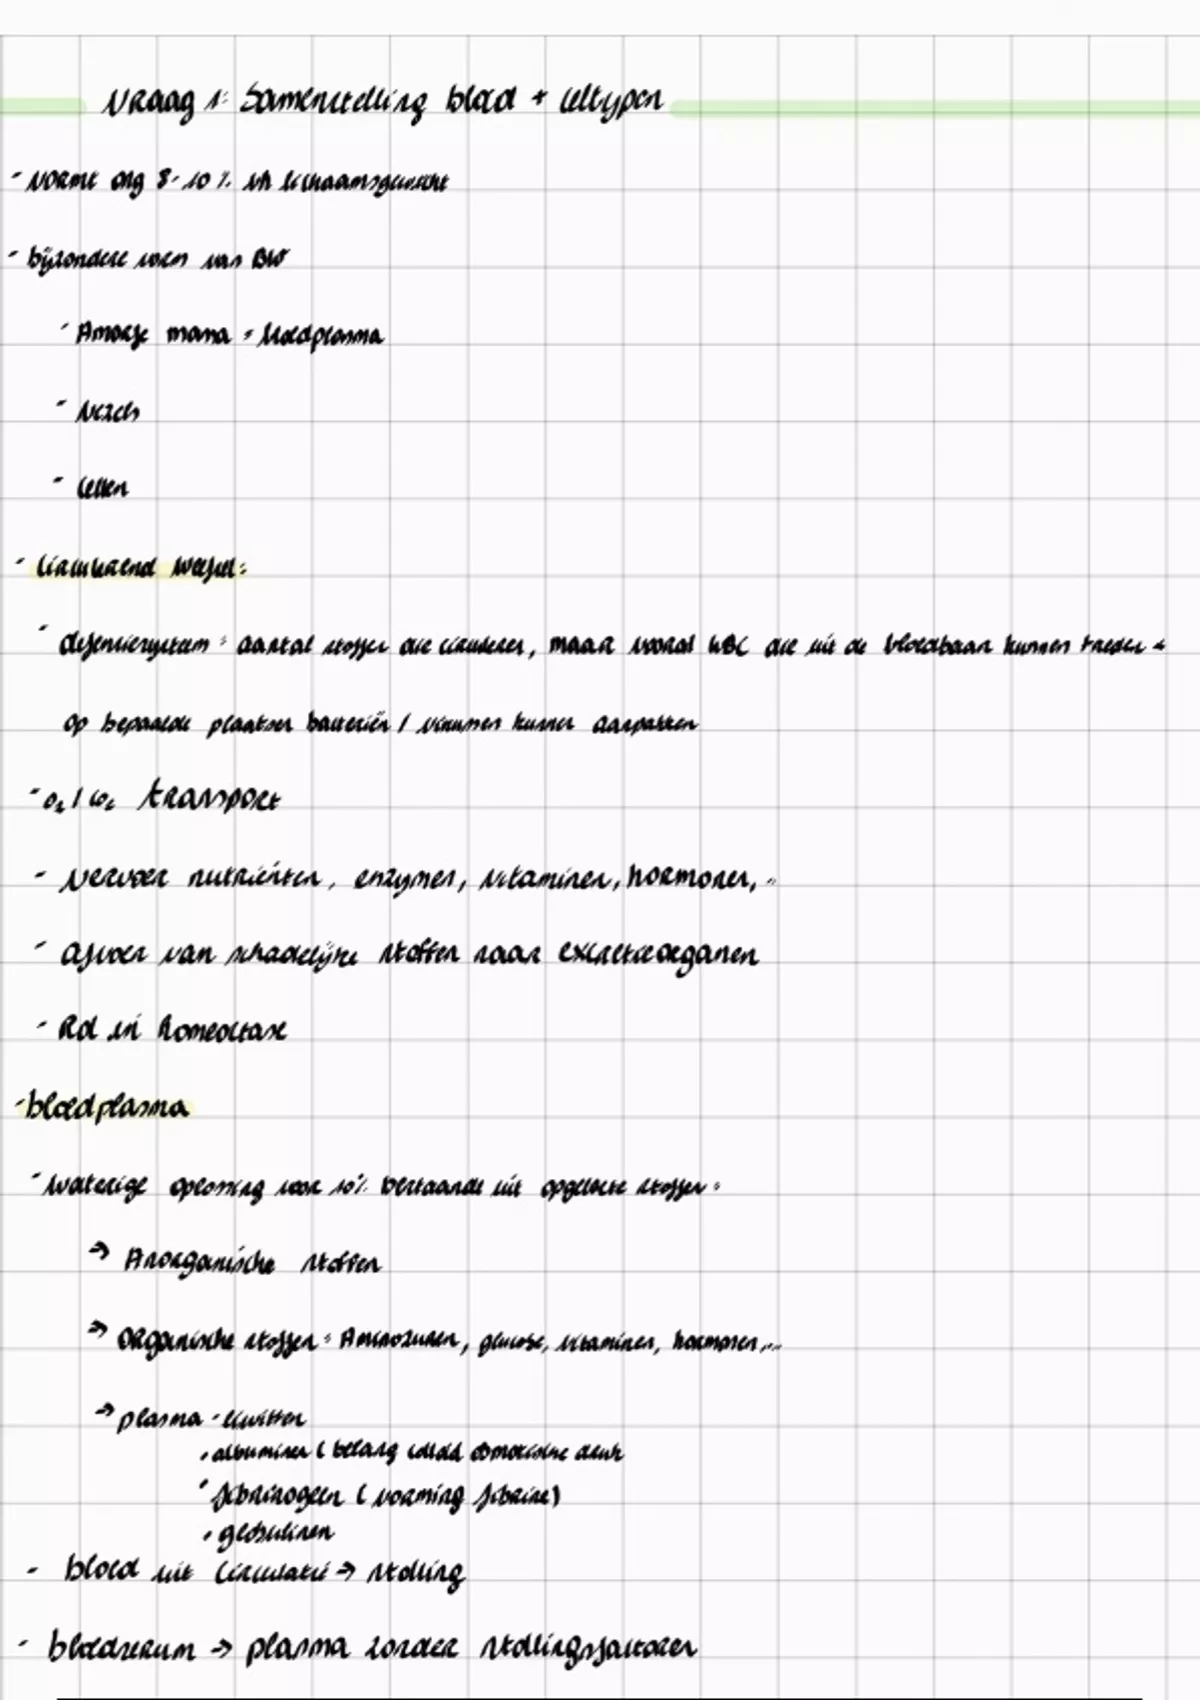 Vraag 1: Samenstelling bloed + celtypen
- Vormt ong 8-10% vh lichaamsgewicht
- bijzondere vorm van BW
- Amorfe massa = bloedplasma
- Vezels
- Cellen
- Circulerend weefsel:
- defensiesysteem: aantal stoffen die circuleren, maar vooral WBC die uit de bloedbaan kunnen treden +
op bepaalde plaatsen bacteriën / virussen kunnen aanpakken
- O₂ / CO₂ transport
- Vervoer nutriënten, enzymen, vitaminen, hormonen, ..
- Afvoer van schadelijke stoffen naar excretieorganen
- Rol in homeostase
- bloedplasma
- Waterige oplossing voor 10% bestaande uit opgeloste stoffen:
→ Anorganische stoffen
→ Organische stoffen: Aminozuren, glucose, vitaminen, hormonen,...
→ plasma-eiwitten
• albuminen ( belang colloïd osmotische druk
• fibrinogeen ( vorming fibrine)
• globulinen
- bloed uit circulatie → stolling
- bloedserum → plasma zonder stollingsfactoren